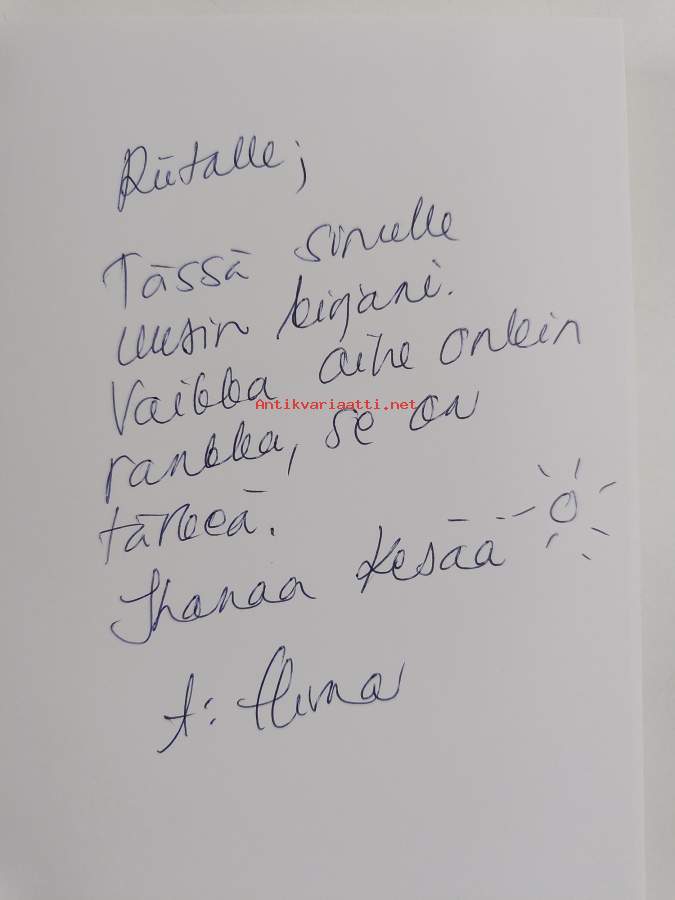 Riitalle;
Tässä sinulle
uusin kirjani.
Vaikka aihe onkin
Antikvariaatti.net
rankka, se on
tärkeä.
Ihanaa Kesää
t: